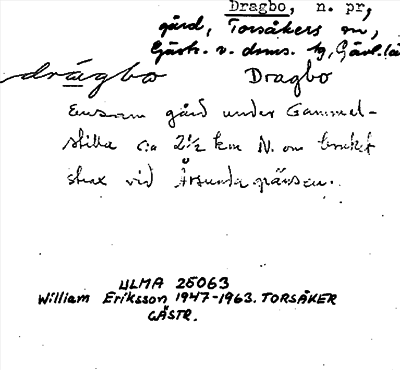 Dragbo, n. pr,
gård, Torsåkers sn,
Gästr. v. doms. hg, Gävl. lä
drágbo Dragbo
Ensam gård under Gammel-
stilla c:a 2 1/2 km N. om bruket
strax vid Årsunda gränsen.
ULMA 25063
William Eriksson 1947-1963. TORSÅKER
GÄSTR.